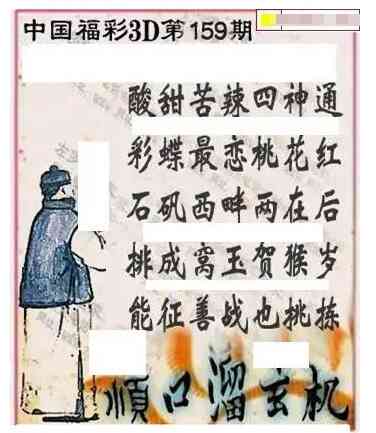 中国福彩3D第159期
酸甜苦辣四神通
彩蝶最恋桃花红
石矶西畔两在后
排成窝玉贺猴岁
能征善战也挑拣
顺口溜玄机